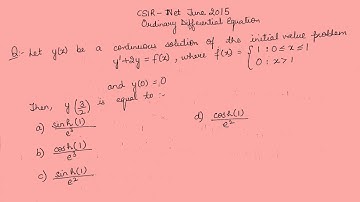 CSIR - Net June 2015
Ordinary Differential Equation
Q:- Let y(x) be a continuous solution of the initial value problem
y'+2y = f(x) , where f(x) = { 1 : 0 ≤ x ≤ 1
0 : x > 1
and y(0) = 0
Then, y(3/2) is equal to :-
a) sinh(1)/e³
b) cosh(1)/e³
c) sinh(1)/e²
d) cosh(1)/e²